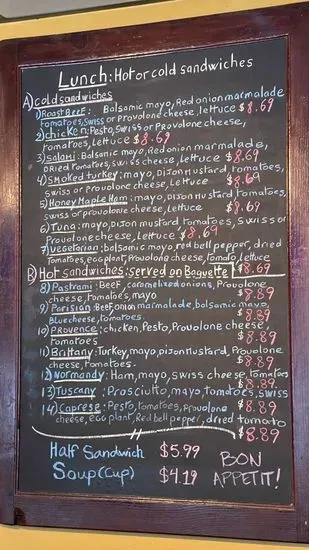 Lunch: Hot or cold sandwiches
A) cold sandwiches
1) Roast Beef: Balsamic mayo, Red onion marmalade
Tomatoes, Swiss or Provolone cheese, lettuce $8.69
2) chicken: Pesto, Swiss or Provolone cheese,
tomatoes, Lettuce $8.69
3) Salami: Balsamic mayo, Red onion marmalade,
DRied Tomatoes, Swiss cheese, Lettuce $8.69
4) Smoked turkey: mayo, Dijon mustard, tomatoes,
Swiss or Provolone cheese, Lettuce $8.69
5) Honey Maple Ham: mayo, Dijon mustard, Tomatoes,
Swiss or provolone cheese, Lettuce $8.69
6) Tuna: mayo, Dijon mustard Tomatoes, Swiss or
Provolone cheese, Lettuce $8.69
7) Vegetarian: balsamic mayo, red bell pepper, dried
Tomatoes, eggplant, Provolone cheese, Tomato, lettuce
B) Hot sandwiches: served on Baguette $8.69
8) Pastrami: Beef, caramelized onions, Provolone
cheese, tomatoes, mayo $8.89
9) Parisian: Beef, onion marmalade, balsamic mayo,
Blue cheese, tomatoes. $8.89
10) Provence: chicken, Pesto, Provolone cheese,
Tomatoes $8.89
11) Brittany: Turkey, mayo, Dijon mustard, Provolone
cheese, tomatoes. $8.89
12) Normandy: Ham, mayo, Swiss cheese, tomatoes
$8.89
13) Tuscany: Prosciutto, mayo, tomatoes, swiss
$8.89
14) Caprese: Pesto, Tomatoes, Provolone
cheese, eggplant, Red bell pepper, dried tomato
$8.89
Half Sandwich $5.99
Soup (cup) $4.19
BON
APPETIT!